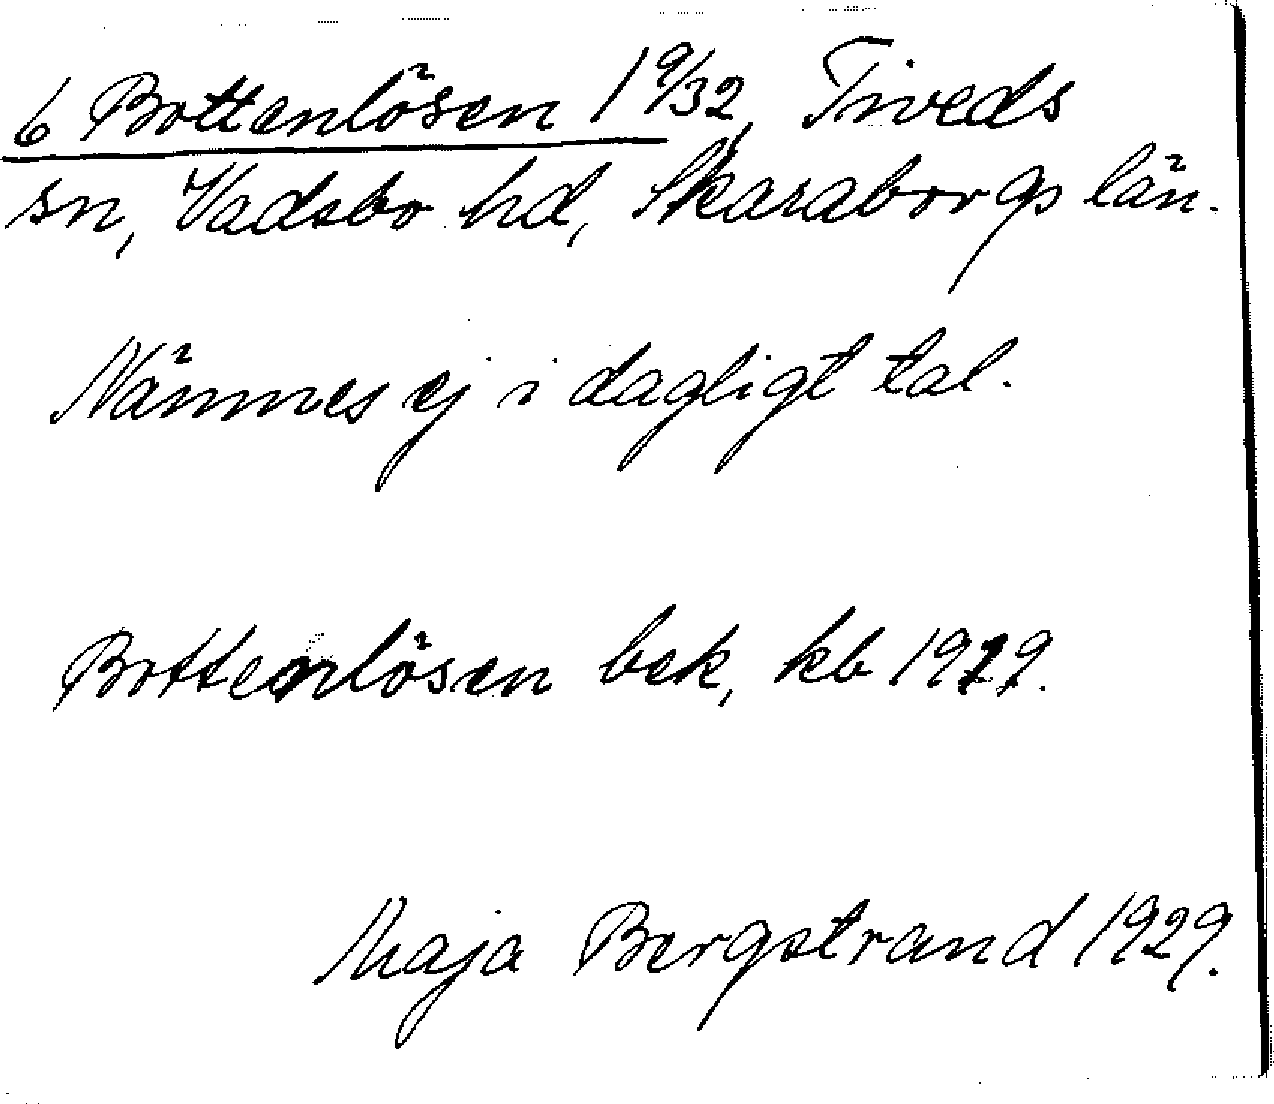 6 Bottenlösen 1 9/32, Tiveds
sn, Vadsbo hd, Skaraborgs län.
Nämnes ej i dagligt tal.
Bottenlösen bek, kb 1929.
Maja Bergstrand 1929.